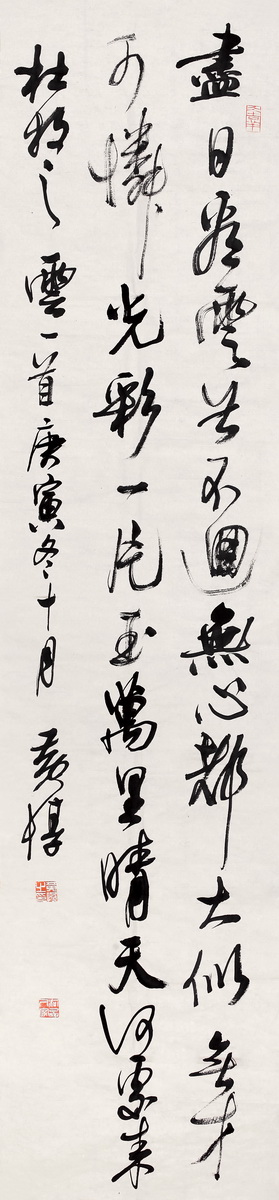 盡日看雲首不回無心都大似無才
可憐光彩一片玉萬里晴天何處來
杜牧之雲一首庚寅冬十月 黃惇